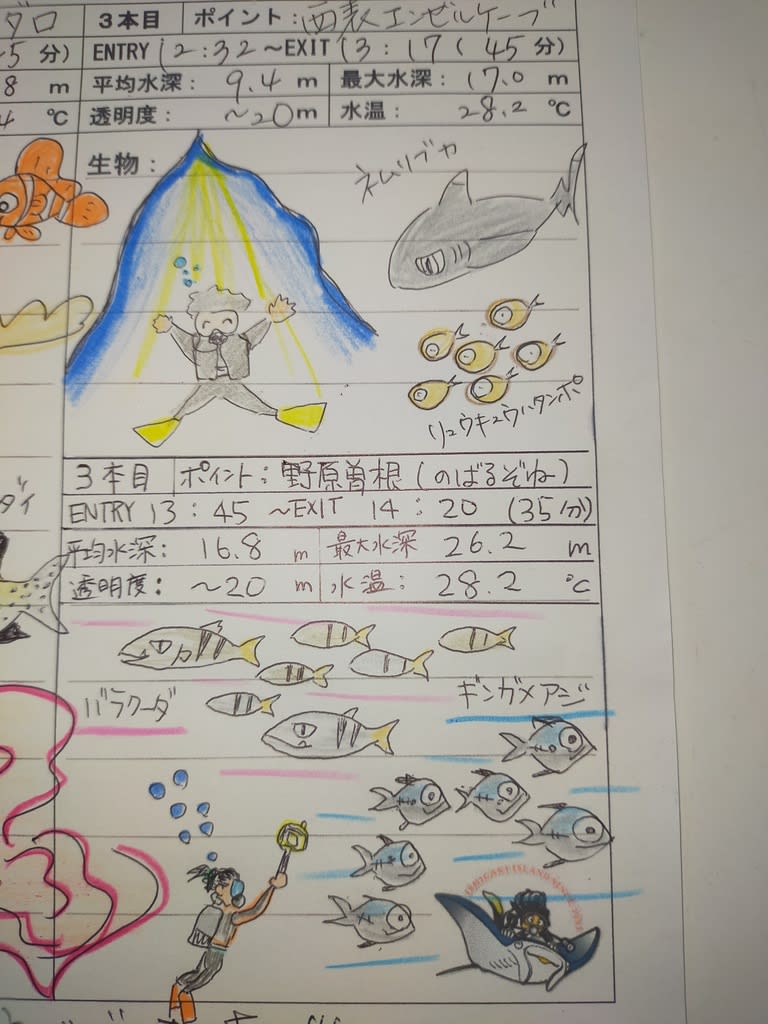 ダロ
3本目 ポイント: 西表エンゼルケーブ
5 分) ENTRY 12:32 ~EXIT 13:17 ( 45 分)
8 m 平均水深: 9.4 m 最大水深: 17.0 m
4 ℃ 透明度: ~20m 水温: 28.2 ℃
生物:
ネムリブカ
リュウキュウハタンポ
ダイ
3本目 ポイント: 野原曽根(のばるぞね)
ENTRY 13:45 ~EXIT 14:20 (35分)
平均水深: 16.8 m 最大水深 26.2 m
透明度: ~20 m 水温: 28.2 ℃
バラクーダ
ギンガメアジ